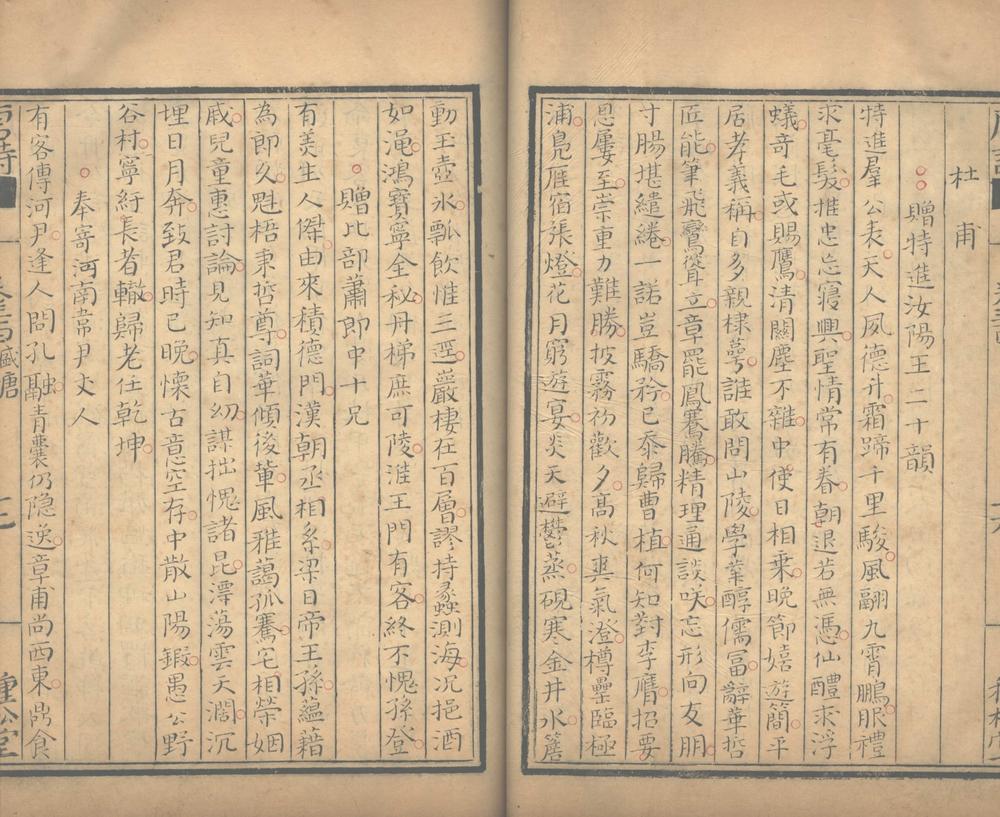 杜甫
贈特進汝陽王二十韻
特進羣公表天人夙德升霜蹄千里駿風翮九霄鵬服禮
求毫髮推忠忘寢興聖情常有眷朝退若無憑仙醴求浮
蟻奇毛或賜鷹清關塵不雜中使日相乘晚節嬉遊簡平
居孝義稱自多親棣萼誰敢問山陵學業醇儒冨辭華哲
匠能筆飛鸞聳立章罷鳳騫騰精理通談咲忘形向友朋
寸腸堪繾綣一諾豈驕矜已忝歸曹植何知對李膺招要
恩屢至崇重力難勝披霧初歡夕髙秋爽氣澄樽罍臨極
浦鳧雁宿張燈花月窮遊宴炎天避鬱蒸硯寒金井水簷
動玉壺氷瓢飲惟三逕巖棲在百層謬持蠡測海况挹酒
如澠鴻寶寧全秘丹梯庶可陵淮王門有客終不愧孫登
贈比部蕭郎中十兄
有美生人傑由來積德門漢朝丞相系梁日帝王孫蘊藉
為郎久魁梧秉哲尊詞華傾後輩風雅藹孤騫宅相榮姻
戚兒童惠討論見知真自幼謀拙愧諸昆漂蕩雲天濶沉
埋日月奔致君時已晚懷古意空存中散山陽鍛愚公野
谷村寧紆長者轍歸老任乾坤
奉寄河南韋尹丈人
有客傳河尹逢人問孔融青囊仍隐逸章甫尚西東鼎食